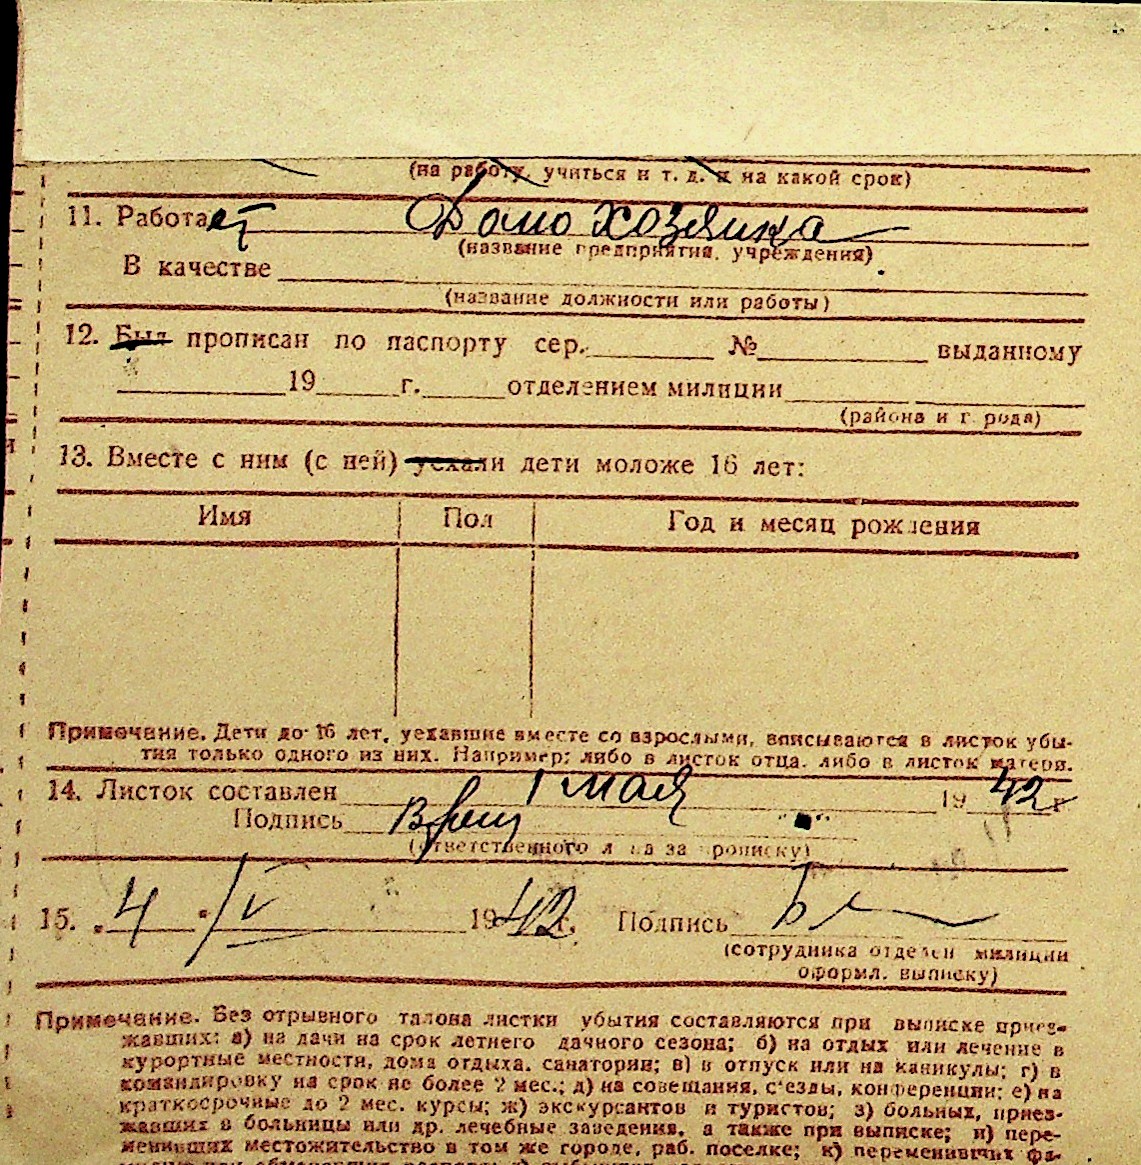 (на работу, учиться и т. д. и на какой срок)
11. Работает Домохозяйка
(название предприятия, учреждения)
В качестве
(название должности или работы)
12. Был прописан по паспорту сер. № выданному
19 г. отделением милиции
(района и города)
13. Вместе с ним (с ней) уехали дети моложе 16 лет:
Имя Пол Год и месяц рождения
Примечание. Дети до 16 лет, уехавшие вместе со взрослыми, вписываются в листок убы-
тия только одного из них. Например: либо в листок отца, либо в листок матери.
14. Листок составлен 1 мая 1942 г
Подпись
(ответственного лица за прописку)
15. 4 / V 1942 г. Подпись
(сотрудника отделен милиции
оформл. выписку)
Примечание. Без отрывного талона листки убытия составляются при выписке приез-
жавших: а) на дачи на срок летнего дачного сезона; б) на отдых или лечение в
курортные местности, дома отдыха, санатории; в) в отпуск или на каникулы; г) в
командировку на срок не более 2 мес.; д) на совещания, с'езды, конференции; е) на
краткосрочные до 2 мес. курсы; ж) экскурсантов и туристов; з) больных, приез-
жавших в больницы или др. лечебные заведения, а также при выписке; и) пере-
менивших местожительство в том же городе, раб. поселке; к) переменивших фа-